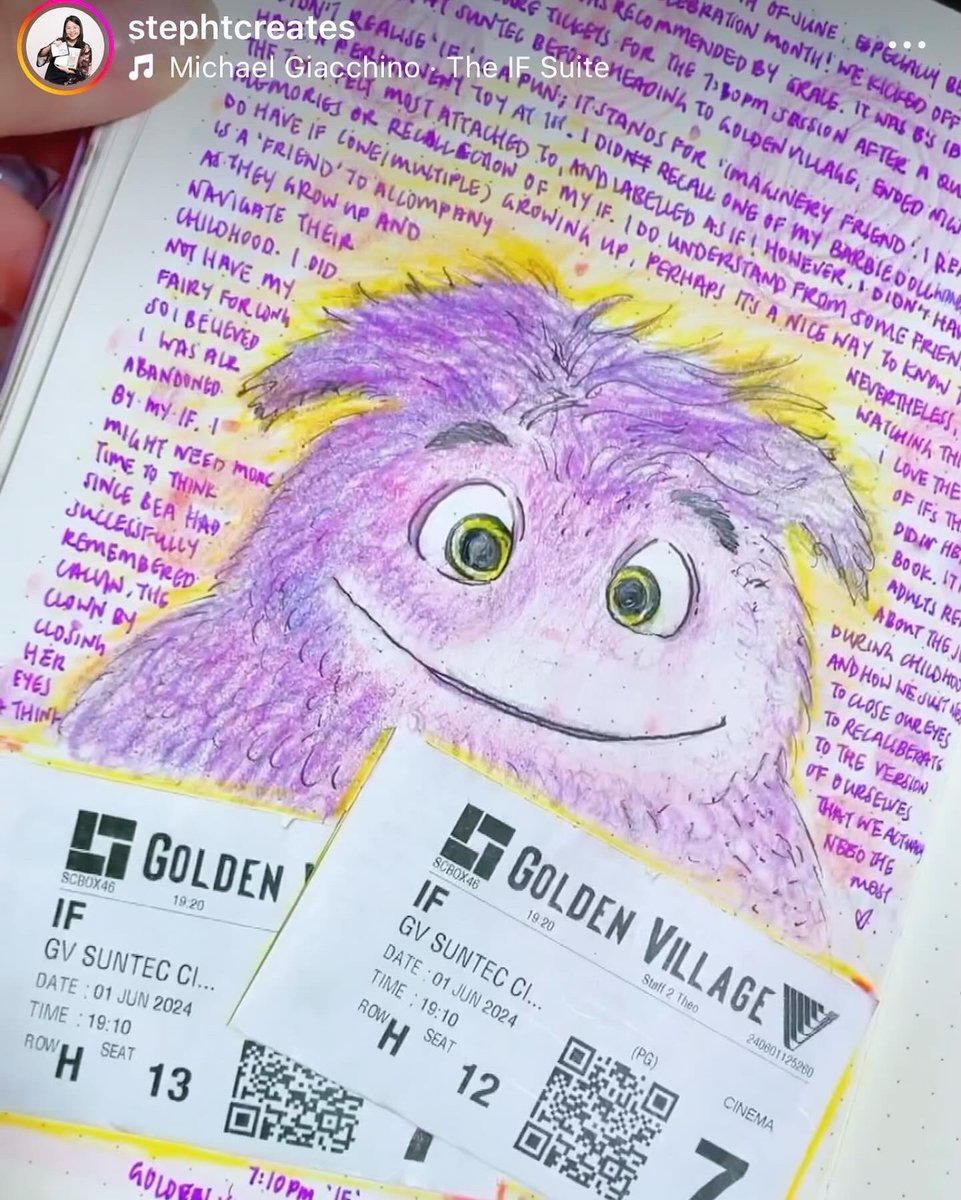 stephtcreates
Michael Giacchino · The IF Suite
OF JUNE, ESPECIALLY BE
CELEBRATION MONTH! WE KICKED OFF
RECOMMENDED BY GRACE. IT WAS B'S
TICKETS FOR THE 7:30PM SESSION AFTER A
SUNTEC BEFORE HEADING TO GOLDEN VILLAGE, ENDED
DIDN'T REALISE 'IF' A PUN; IT STANDS FOR 'IMAGINERY FRIEND'. I
TOY AT 1ST. I DIDN'T RECALL ONE OF MY BARBIE DOLL
FELT MOST ATTACHED TO, AND LABELLED AS IF! HOWEVER, I DIDN'T HAVE
MEMORIES OR RECOLLECTION OF MY IF. I DO UNDERSTAND FROM SOME FRIEN
DO HAVE IF (ONE/MULTIPLE) GROWING UP, PERHAPS IT'S A NICE WAY TO KNOW
IS A 'FRIEND' TO ACCOMPANY
AS THEY GROW UP AND
NAVIGATE THEIR
CHILDHOOD. I DID
NOT HAVE MY
FAIRY FOR LONG
SO I BELIEVED
I WAS ALR
ABANDONED
BY MY IF. I
MIGHT NEED MORE
TIME TO THINK
SINCE BEA HAD
SUCCESSFULLY
REMEMBERED
CALVIN, THE
CLOWN BY
CLOSING
HER
EYES
+ THINK
NEVERTHELESS,
WATCHING THI
I LOVE THE
OF IFS TH
DIDN'T HE
BOOK. IT
ADULTS RE
ABOUT THE
DURING CHILDHOO
AND HOW WE JUST NEE
TO CLOSE OUR EYES
TO RECALIBERATE
TO THE VERSION
OF OURSELVES
THAT WE ACTUALLY
NEED THE
MOST
GOLDEN
SCBOX46
19:20
IF
GV SUNTEC CI...
DATE : 01 JUN 2024
TIME : 19:10
ROW H SEAT 13
GOLDEN VILLAGE
SCBOX46
19:20
Staff 2 Theo
240601125260
IF
GV SUNTEC CI...
DATE : 01 JUN 2024
TIME : 19:10
(PG)
ROW H SEAT 12
CINEMA
7
7:10PM 'IF'
GOLDEN